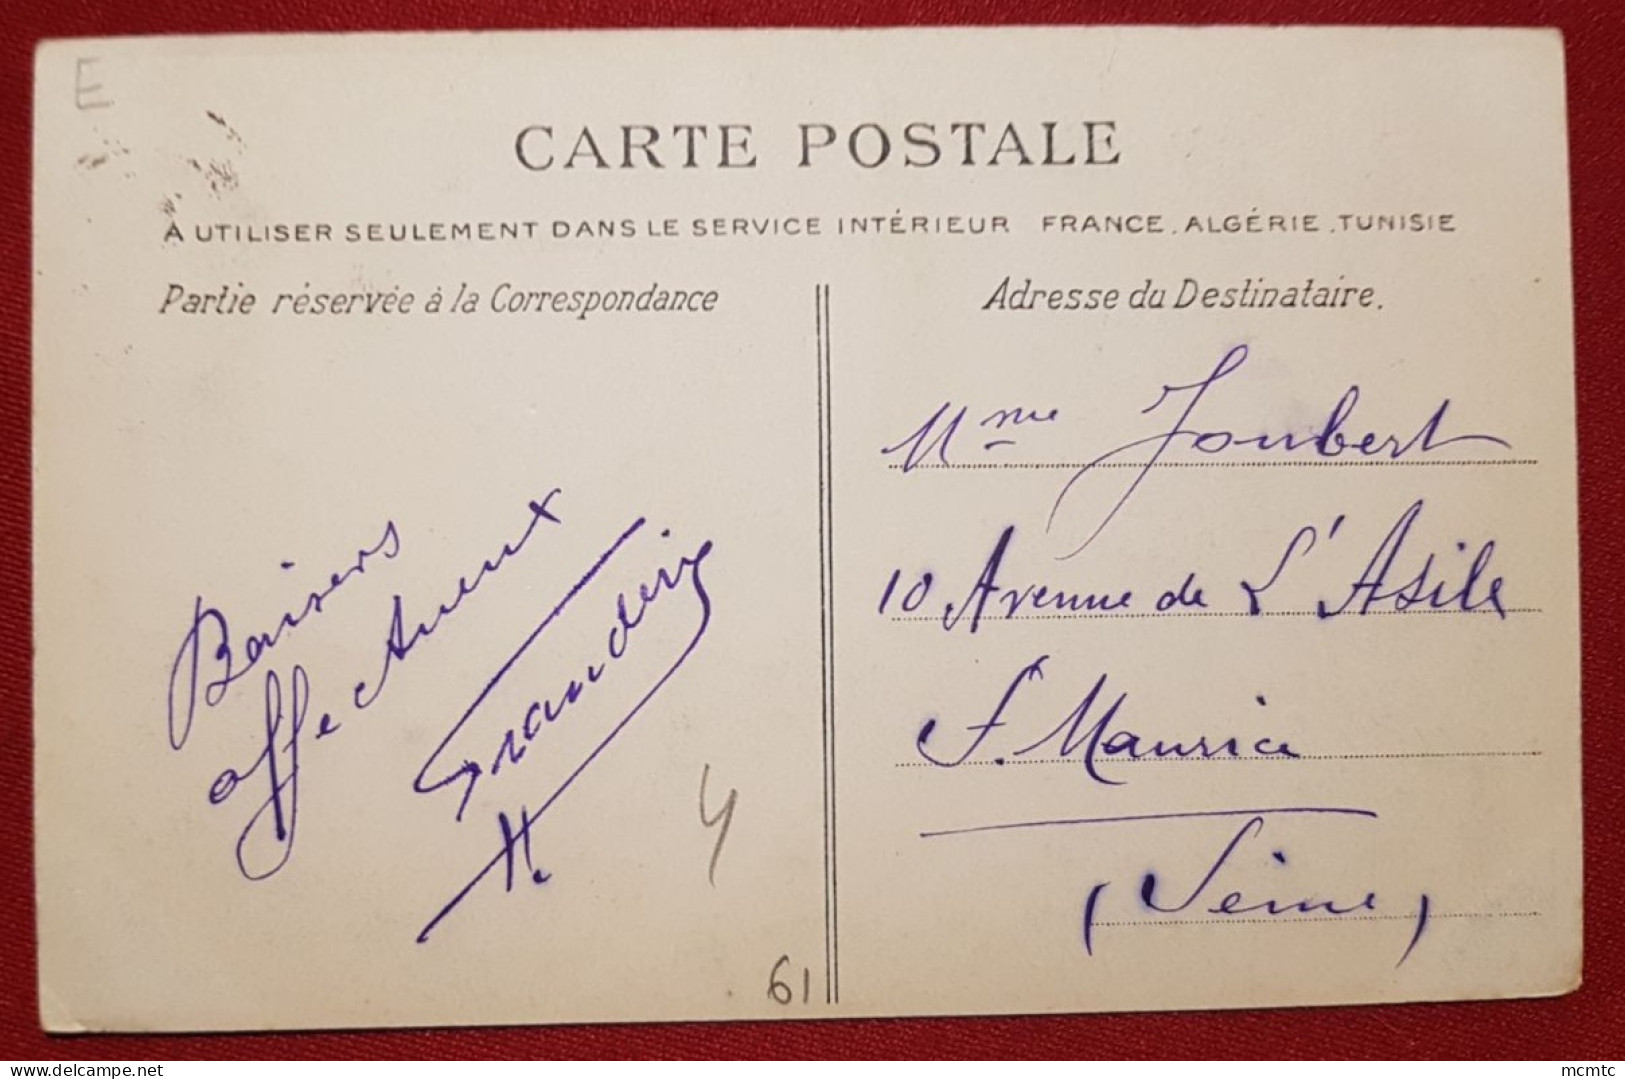 E
CARTE POSTALE
À UTILISER SEULEMENT DANS LE SERVICE INTÉRIEUR FRANCE, ALGÉRIE, TUNISIE
Partie réservée à la Correspondance
Baisers
affectueux
H.
4
61
Adresse du Destinataire.
Mme Joubert
10 Avenue de L'Asile
St. Maurice
(Seine)
delcampe.net
mcmtc